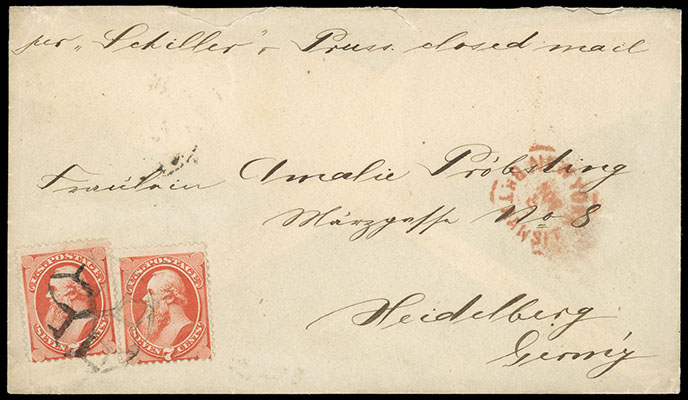 per "Schiller" Pruss. closed mail
Fräulein Amalie Pröbsting
Märzgasse No 8
Heidelberg
Germ'y
NEW YORK TRANSIT
U.S. POSTAGE
SEVEN 7 CENTS
U.S. POSTAGE
SEVEN 7 CENTS